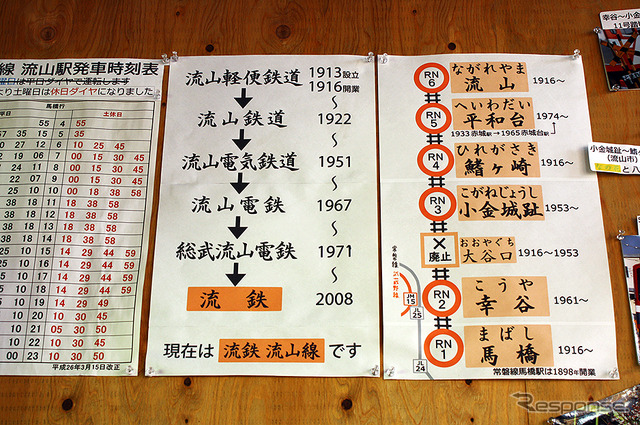 線 流山駅発車時刻表
曜日は平日ダイヤで運転します
より土曜日は休日ダイヤになりました
馬橋行
平日
土休日
55 4 55
57 35 15 5 35
0 27 12 6 10 25 45
2 19 06 7 00 15 30 45
24 11 8 00 15 30 45
22 07 9 00 15 30 45
25 10 10 00 18 38 58
38 18 11 18 38 58
38 18 12 18 38 58
38 18 13 18 38 58
38 18 14 18 38 58
10 15 14 29 44 59
10 16 14 29 44 59
15 17 14 29 44 59
10 18 14 29 44 59
10 19 14 29 49
10 20 10 29 49
10 21 05 30 50
10 22 10 30 50
00 23 10 30 50
平成26年3月15日改正
流山軽便鉄道 1913設立
1916開業
～
流山鉄道 1922
～
流山電気鉄道 1951
～
流山電鉄 1967
～
総武流山電鉄 1971
～
流鉄 2008
現在は 流鉄 流山線 です
RN6 ながれやま
流山 1916～
RN5 へいわだい
平和台 1974～
1933赤城駅→1965赤城台駅
RN4 ひれがさき
鰭ヶ崎 1916～
RN3 こがねじょうし
小金城趾 1953～
×廃止 おおやぐち
大谷口 1916～1953
常磐線
武蔵野線
JM15
JL25
RN2 こうや
幸谷 1961～
RN1 まばし
馬橋 1916～
JL24
常磐線馬橋駅は1898年開業
幸谷～小金
11号踏
小金城趾～鰭ケ
(流山市)
と八
Response.